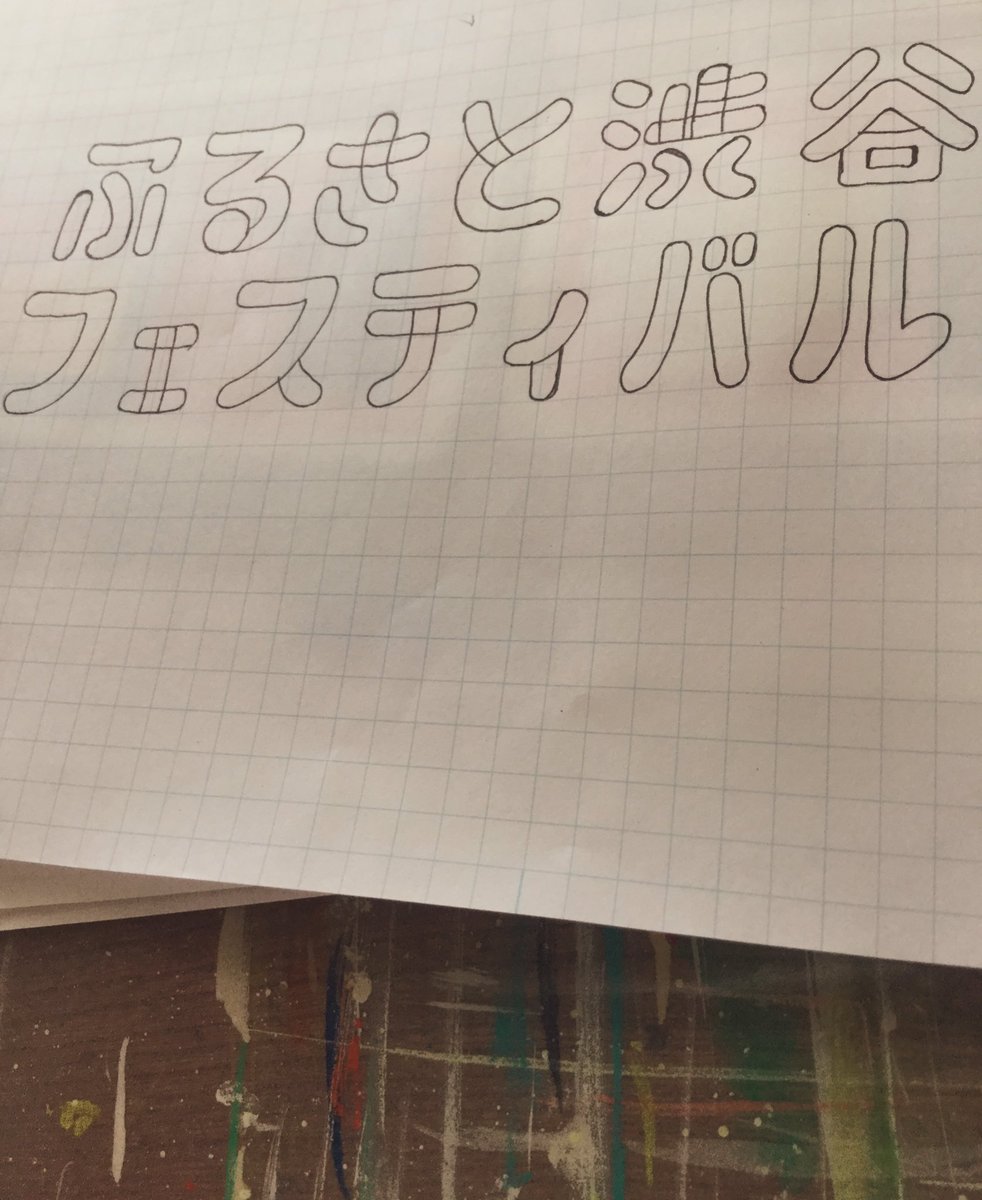 ふるさと渋谷
フェスティバル